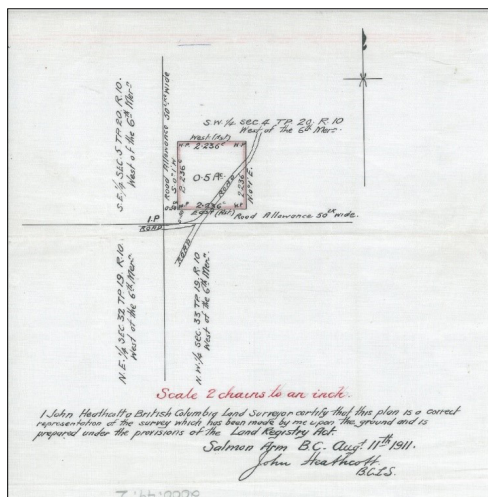 S.W. ¼ SEC 4, TP. 20, R. 10
West of the 6th Mer.
S.E. ¼ SEC. 5, TP. 20, R. 10.
West of the 6th Mer.
Road Allowance 50 Lk wide
West (Ast)
W.P. W.P.
2.236
S.0°1'W.
2.236
0.5 Ac.
2.236
N.0°1'E.
ROAD
2.236
East (Ast)
Road Allowance 50 Lk wide.
I.P
ROAD
ROAD
N.E. ¼ SEC. 32, TP. 19, R. 10.
West of the 6th Mer.
N.W. ¼ SEC. 33, TP. 19, R. 10
West of the 6th Mer.
Scale 2 chains to an inch.
I John Heathcott a British Columbia Land Surveyor certify that this plan is a correct
representation of the survey which has been made by me upon the ground and is
prepared under the provisions of the Land Registry Act.
Salmon Arm B.C. Augt 11th 1911.
John Heathcott
B.C.L.S.